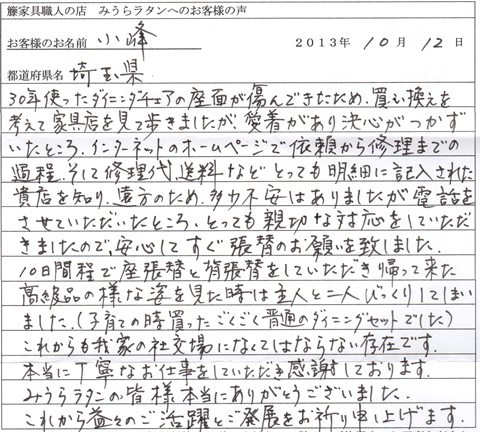 籐家具職人の店　みうらラタンへのお客様の声
お客様のお名前　小峰　2013年 10月 12日
都道府県名　埼玉県
30年使ったダイニングチェアの座面が傷んできたため、買い換えを
考えて家具店を見て歩きましたが、愛着があり決心がつかず
いたところ、インターネットのホームページで依頼から修理までの
過程、そして修理代、送料など とっても明細に記入された
貴店を知り、遠方のため、多少不安はありましたが電話を
させていただいたところ、とっても親切な対応をしていただ
きましたので、安心してすぐ張替のお願いを致しました。
10日間程で座張替と背張替をしていただき帰って来た
高級品の様な姿を見た時は主人と二人びっくりしてしまい
ました。(子育ての時買ったごくごく普通のダイニングセットでした)
これからも我家の社交場になくてはならない存在です。
本当に丁寧なお仕事をしていただき感謝しております。
みうらラタンの皆様本当にありがとうございました。
これから益々のご活躍とご発展をお祈り申し上げます。